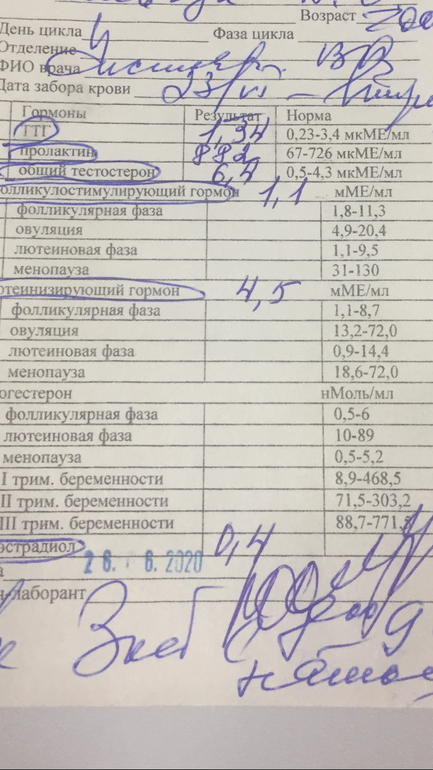 Возраст
День цикла 4 Фаза цикла
Отделение
ФИО врача
Дата забора крови 23/VI
Гормоны Результат Норма
ТТГ 1,34 0,23-3,4 мкМЕ/мл
пролактин 892 67-726 мкМЕ/мл
общий тестостерон 6,4 0,5-4,3 мкМЕ/мл
олликулостимулирующий гормон 1,1 мМЕ/мл
фолликулярная фаза 1,8-11,3
овуляция 4,9-20,4
лютеиновая фаза 1,1-9,5
менопауза 31-130
ютеинизирующий гормон 4,5 мМЕ/мл
фолликулярная фаза 1,1-8,7
овуляция 13,2-72,0
лютеиновая фаза 0,9-14,4
менопауза 18,6-72,0
огестерон нМоль/мл
фолликулярная фаза 0,5-6
лютеиновая фаза 10-89
менопауза 0,5-5,2
I трим. беременности 8,9-468,5
II трим. беременности 71,5-303,2
III трим. беременности 88,7-771,5
эстрадиол 0,4
2020
-лаборант